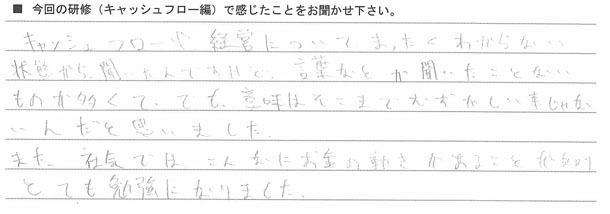 ■ 今回の研修（キャッシュフロー編）で感じたことをお聞かせ下さい。
キャッシュフローや 経営についてまったくわからない
状態から、聞いたんですけど、言葉などが聞いたことない
ものが多くて、でも、意味はそこまでむずかしい事じゃな
いんだと思いました。
また、社会では こんなにお金の動きがあることが
とても勉強になりました。